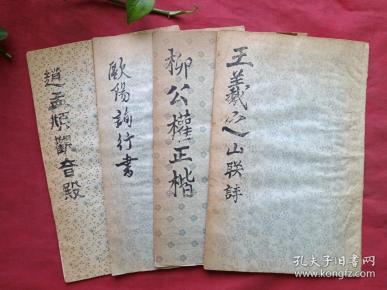 趙孟頫觀音殿
歐陽詢行書
柳公權正楷
王羲之山联詩
孔夫子旧书网